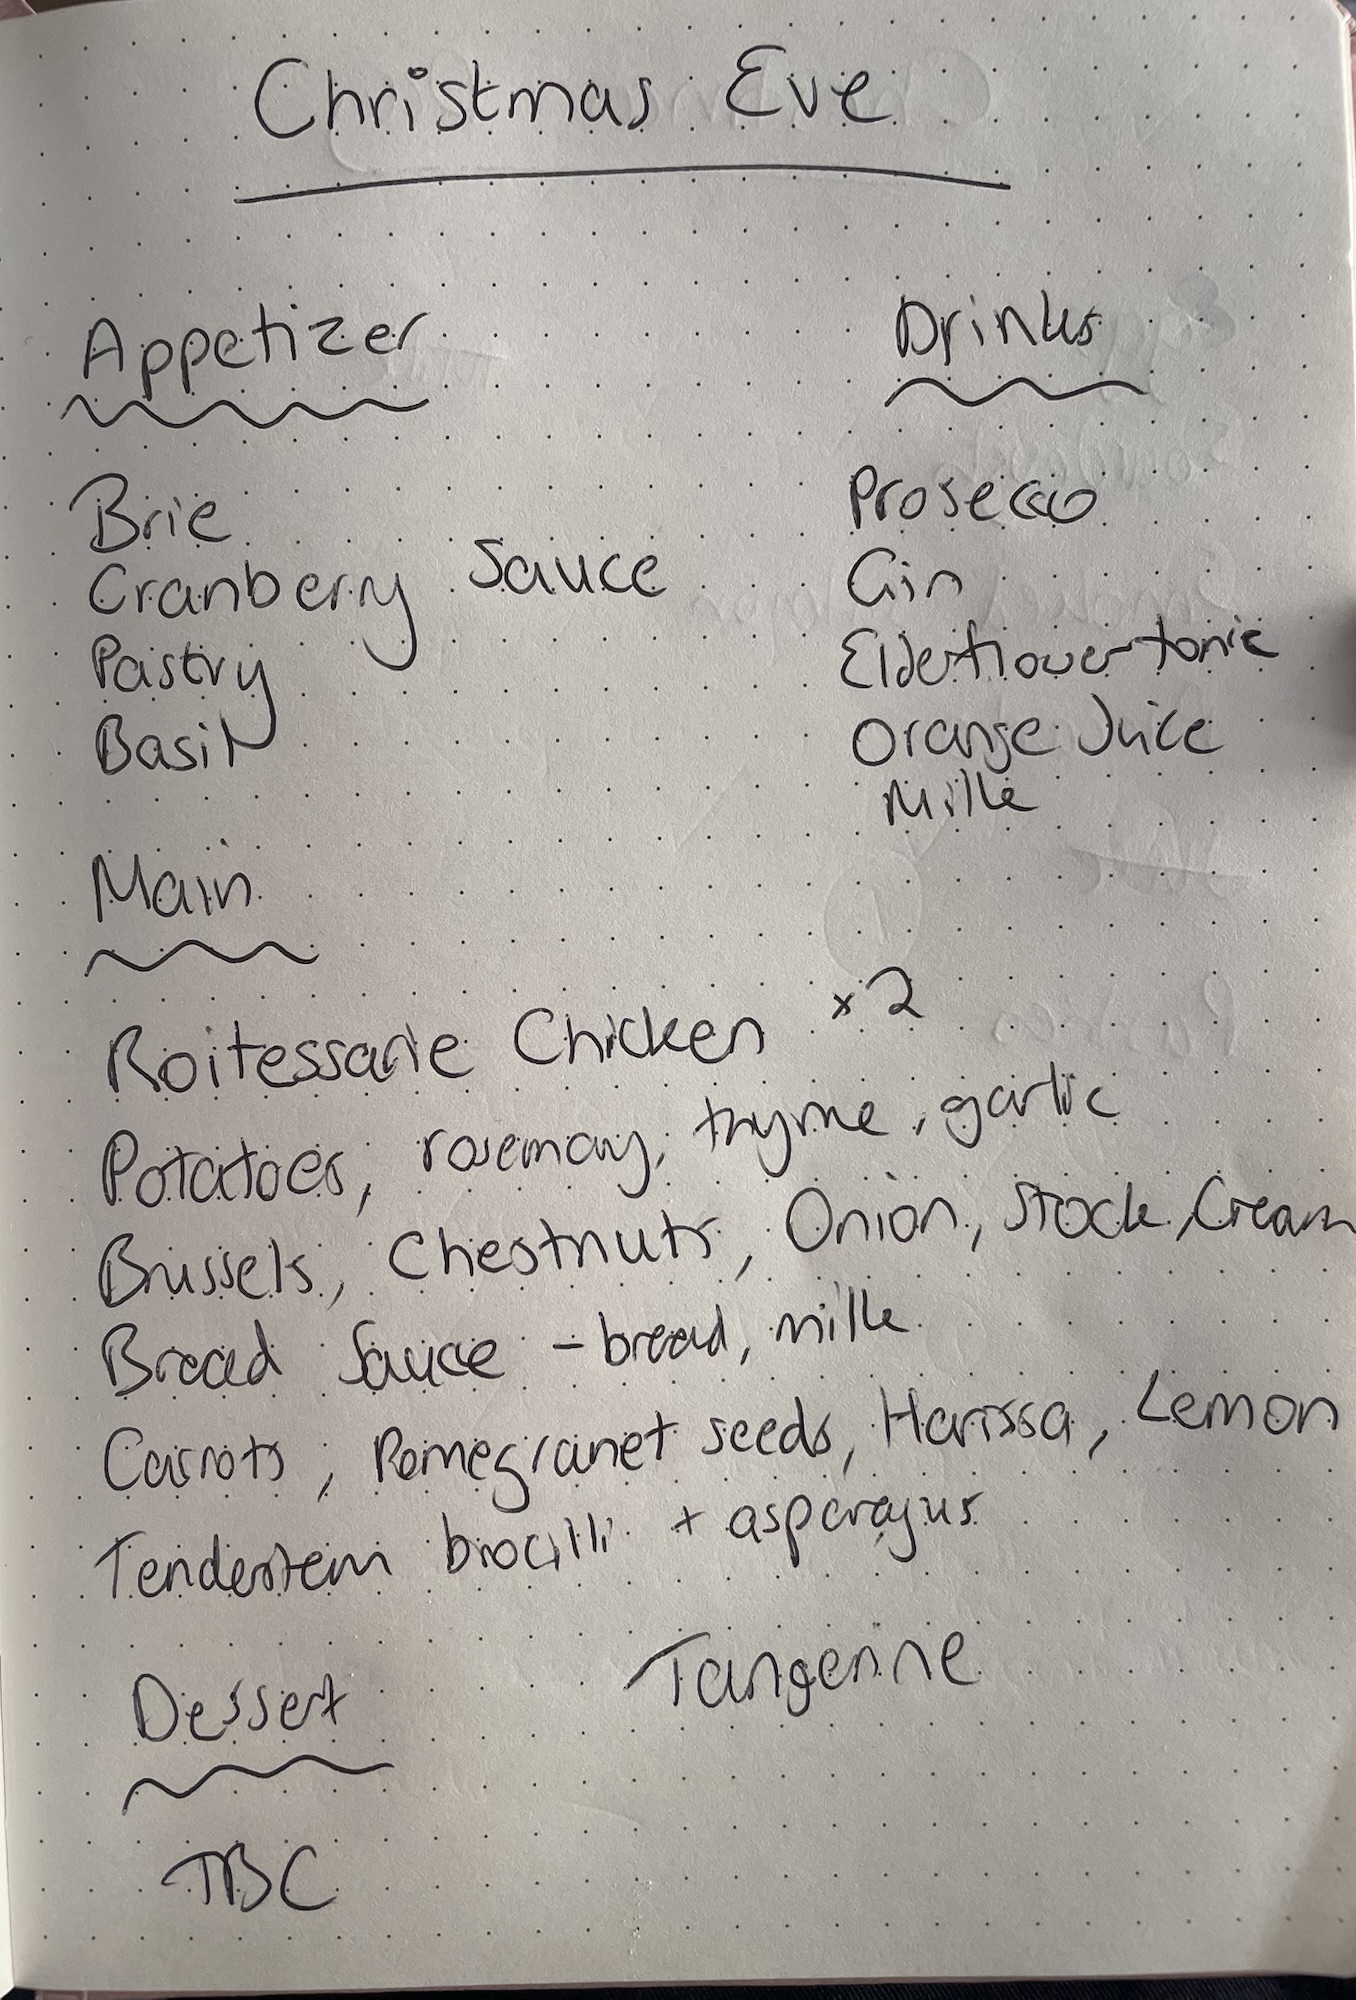 Christmas Eve
Appetizer
Brie
Cranberry Sauce
Pastry
Basil
Drinks
Prosecco
Gin
Elderflower tonic
Orange Juice
Milk
Main
Roitessarie Chicken x2
Potatoes, rosemary, thyme, garlic
Brussels, Chestnuts, Onion, Stock, Cream
Bread Sauce - bread, milk
Carrots, Pomegranet seeds, Harissa, Lemon
Tenderstem brocilli + asparagus
Tangerine
Dessert
TBC